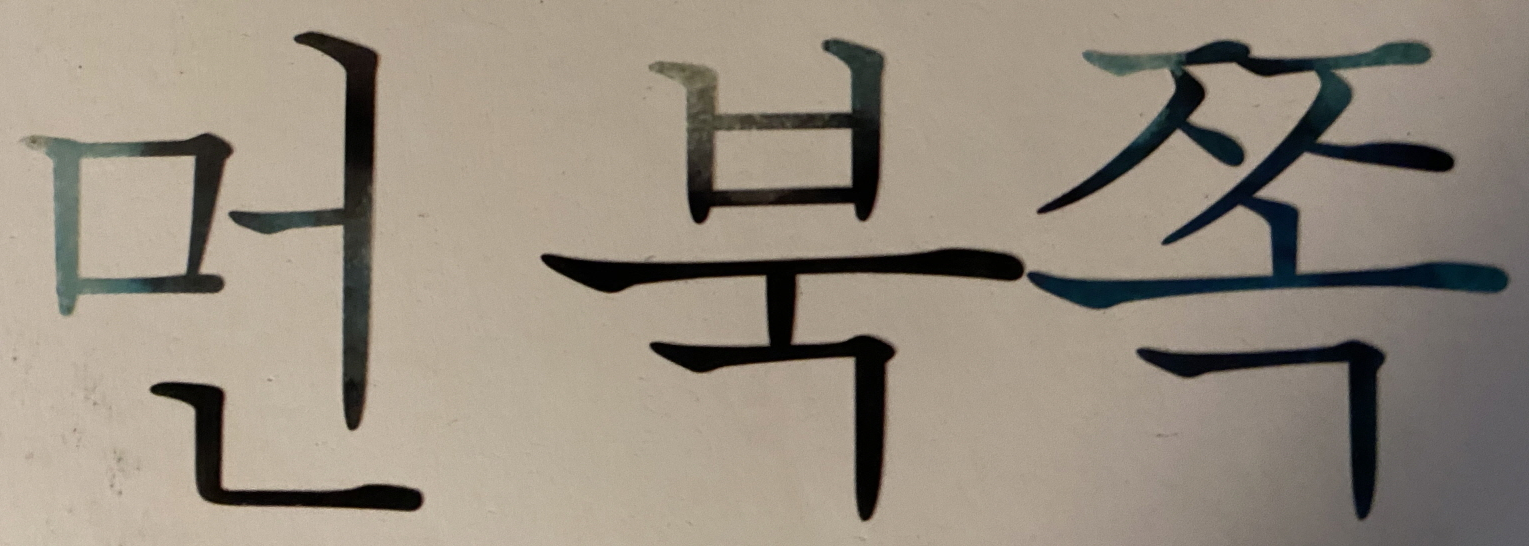 먼 북쪽